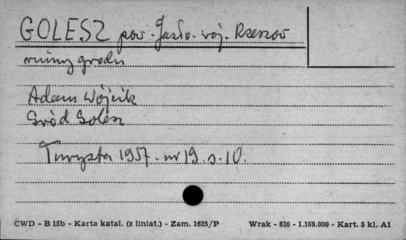 GOLESZ pow. Jasło. woj. Rzeszów
ruiny grodu
Adam Wójcik
Gród Golesz
Turysta 1957. nr 19. s. 10.
CWD - B 15b - Karta katal. (z liniat.) - Zam. 1625/P Wrak - 830 - 1.169.000 - Kart. 5 kl. A1